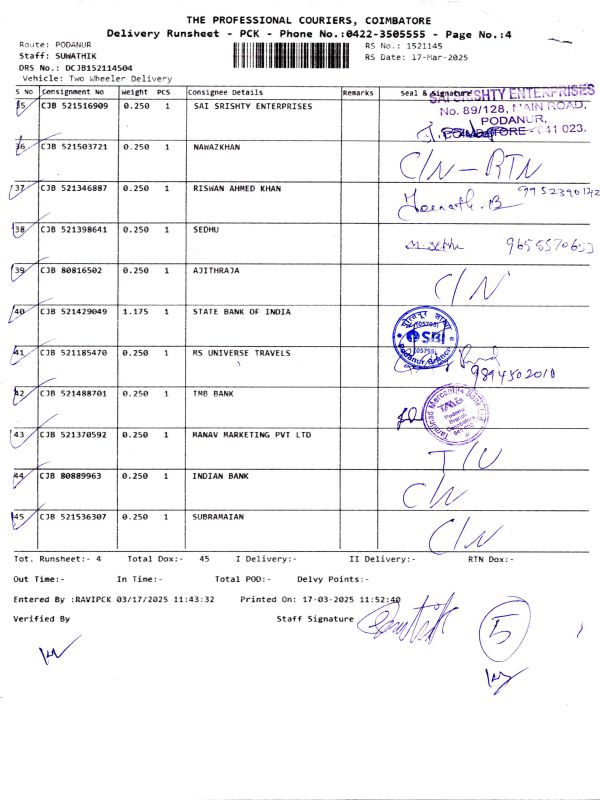 THE PROFESSIONAL COURIERS, COIMBATORE
Delivery Runsheet - PCK - Phone No.:0422-3505555 - Page No.:4
Route: PODANUR
RS No.: 1521145
Staff: SUWATHIK
RS Date: 17-Mar-2025
DRS No.: DCJB152114504
Vehicle: Two Wheeler Delivery
S No Consignment No Weight PCS Consignee Details Remarks Seal & Signature
35 CJB 521516909 0.250 1 SAI SRISHTY ENTERPRISES
SAI SRISHTY ENTERPRISES
No. 89/128, MAIN ROAD,
PODANUR,
COIMBATORE - 641 023.
36 CJB 521503721 0.250 1 NAWAZKHAN C/N - RTN
37 CJB 521346887 0.250 1 RISWAN AHMED KHAN
38 CJB 521398641 0.250 1 SEDHU 9655570653
39 CJB 80816502 0.250 1 AJITHRAJA C/N
40 CJB 521429049 1.175 1 STATE BANK OF INDIA
SBI
Podanur Branch
41 CJB 521185470 0.250 1 MS UNIVERSE TRAVELS 9894502010
42 CJB 521488701 0.250 1 TMB BANK
Tamilnad Mercantile Bank Ltd
TMB
Podanur
Branch
Coimbatore
43 CJB 521370592 0.250 1 MANAV MARKETING PVT LTD
44 CJB 80889963 0.250 1 INDIAN BANK C/N
45 CJB 521536307 0.250 1 SUBRAMAIAN C/N
Tot. Runsheet:- 4 Total Dox:- 45 I Delivery:- II Delivery:- RTN Dox:-
Out Time:- In Time:- Total POD:- Delvy Points:-
Entered By :RAVIPCK 03/17/2025 11:43:32 Printed On: 17-03-2025 11:52:40
Verified By Staff Signature
5